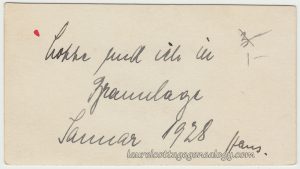 Lotte und ich in
Braunlage
Januar 1928 Hans.
1-
laurelcottagegenealogy.com